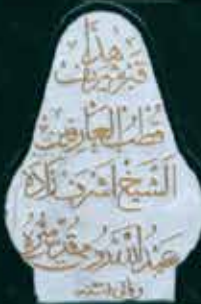 هذا
قبر شريف
قطب العارفين
الشيخ اشرف زاده
عبد الله رومي قدس سره